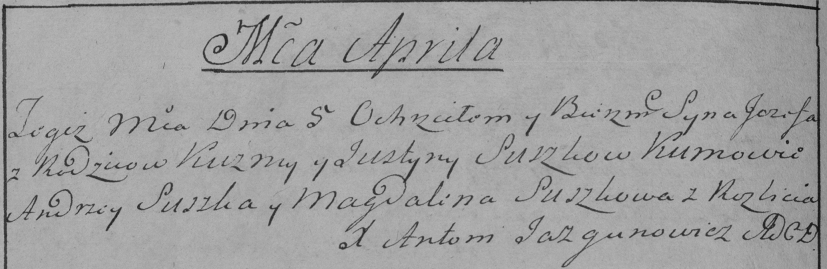 Mča Aprila
Tegiż Mča Dnia 5 Ochrzciłem y Bierzm: Syna Jozefa
z Rodzicow Kuzmy y Justyny Suszkow Kumowie
Andrzey Suszka y Magdalina Suszkowa z Rozlicia
X Antoni Jazgunowicz